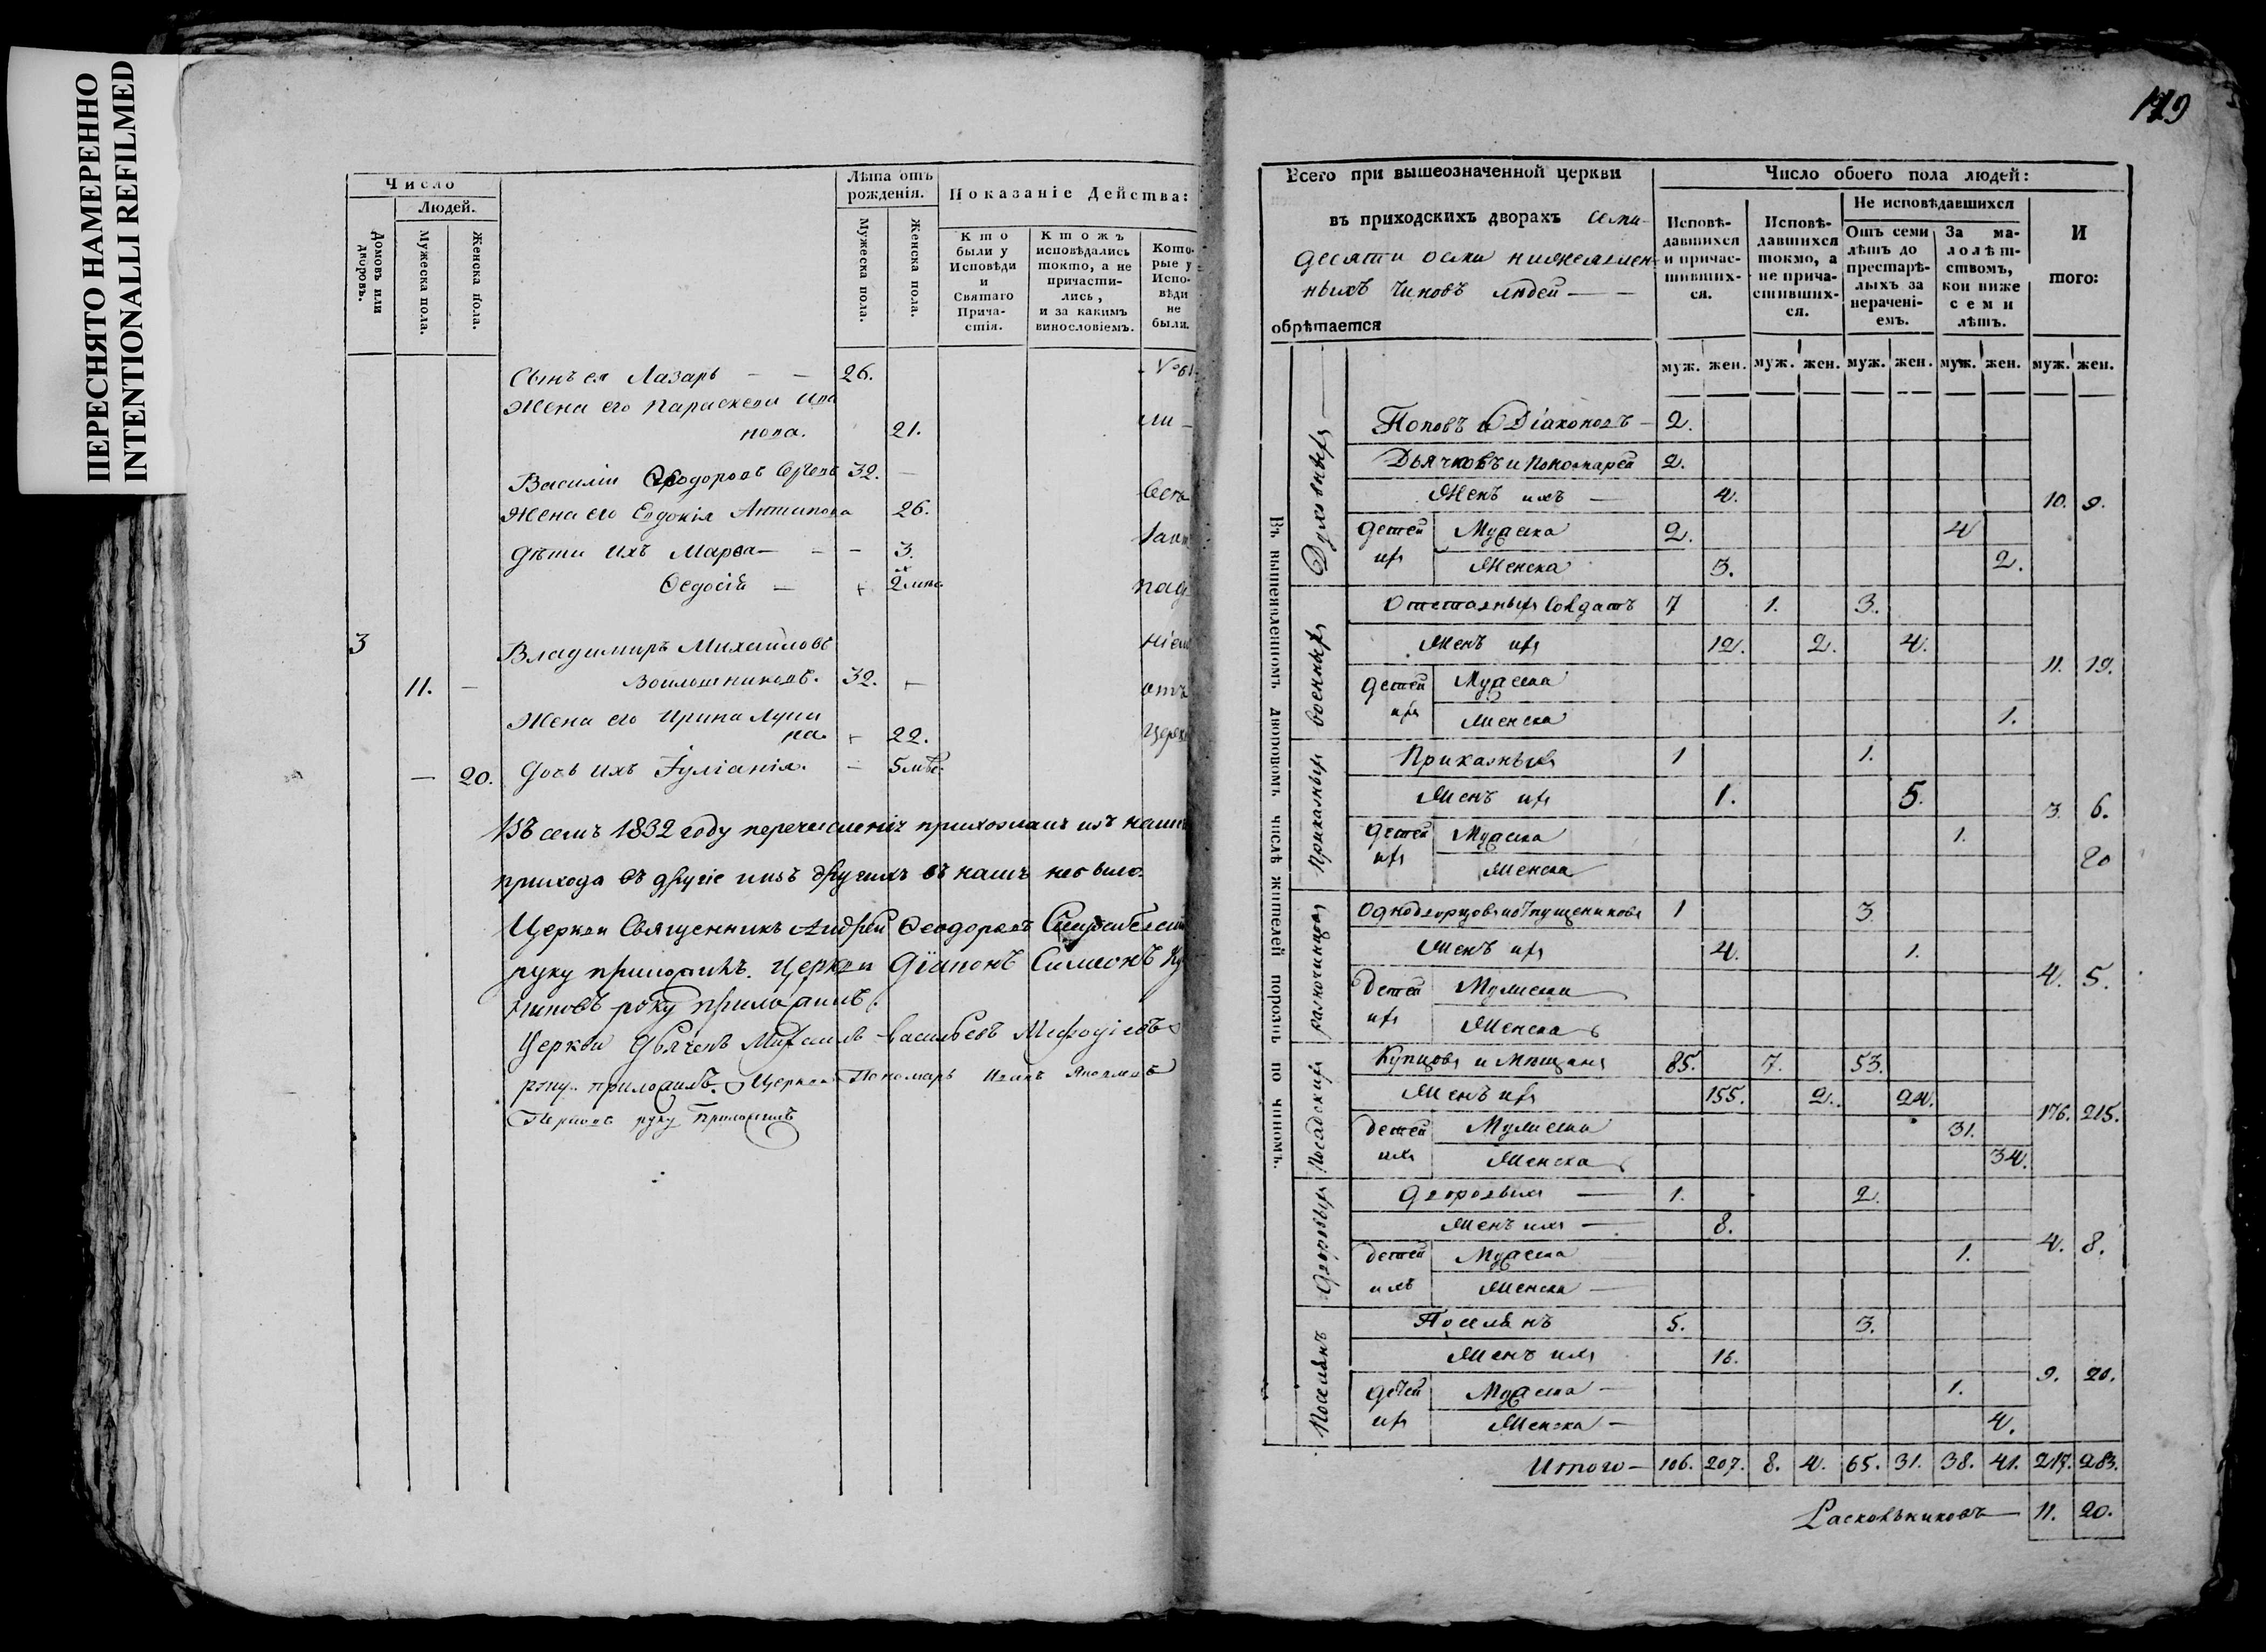 ПЕРЕСНЯТО НАМЕРЕННО
INTENTIONALLI REFILMED
Число
Людей.
Домовъ или дворовъ.
Мужеска пола.
Женска пола.
Лѣта отъ рожденія.
Мужеска пола.
Женска пола.
Показаніе Действа:
Кто были у Исповѣди и Святаго Причастія.
Ктожъ исповѣдались токмо, а не причастились, и за какимъ винословіемъ.
Которые у Исповѣди не были.
Сынъ ея Лазарь — — 26.
Жена его Параскева
нова. 21.
Василій Ѳеодоровъ 32. —
Жена его Евдокія Антипова 26.
Дѣти ихъ Марѳа — — — 3.
Ѳедосій —
3 Владимиръ Михайловъ
11. — 32. —
Жена его Ирина
на. 22.
— 20. Дочь ихъ Іуліанія. — 5
Въ семъ 1832 году перечисленія прихожанъ изъ нашего
прихода въ другіе и изъ другихъ въ нашъ не было.
Церкви Священникъ Андрей Ѳеодоровъ
руку приложилъ. Церкви Діаконъ Симеонъ
руку приложилъ.
Церкви Дьячекъ Михаилъ Васильевъ Меѳодіевъ
руку приложилъ. Церкви Пономарь Яковлевъ
руку приложилъ
179
Всего при вышеозначенной церкви
въ приходскихъ дворахъ семи-
десяти осми нижеявлен-
ныхъ чиновъ людей —
обрѣтается
Число обоего пола людей:
Исповѣдавшихся и причастившихся.
Исповѣдавшихся токмо, а не причастившихся.
Не исповѣдавшихся
Отъ семи лѣтъ до престарѣлыхъ за нераченіемъ.
За малолѣтствомъ, кои ниже семи лѣтъ.
И того:
муж. жен. муж. жен. муж. жен. муж. жен. муж. жен.
Въ вышеявленномъ дворовомъ числѣ жителей порознь по чиномъ.
Духовныхъ
Поповъ и Діаконовъ — 2.
Дьячковъ и Пономарей 2.
Женъ ихъ — 4. 10. 9.
Детей ихъ Мужеска 2. 4
Женска 3. 2.
Военныхъ
Отставныхъ Солдатъ 7 1. 3.
Женъ ихъ 12. 2. 4. 11. 19.
Детей ихъ Мужеска
Женска 1.
Приказныхъ
Приказныхъ 1 1.
Женъ ихъ 1. 5. 3. 6.
Детей ихъ Мужеска 1.
Женска 20
Разночинцовъ
Однодворцовъ и отпущениковъ 1 3.
Женъ ихъ 4. 1. 4. 5.
Детей ихъ Мужеска
Женска
Посадскихъ
Купцовъ и Мѣщанъ 85. 7. 53.
Женъ ихъ 155. 2. 24. 176. 215.
Детей ихъ Мужеска 31.
Женска 34.
Дворовыхъ
Дворовыхъ — 1. 2.
Женъ ихъ — 8. 4. 8.
Детей ихъ Мужеска 1.
Женска —
Поселянъ
Поселянъ 5. 3.
Женъ ихъ 16. 9. 20.
Детей ихъ Мужеска — 1.
Женска — 4.
Итого — 106. 207. 8. 4. 65. 31. 38. 41. 217. 283.
Раскольниковъ — 11. 20.